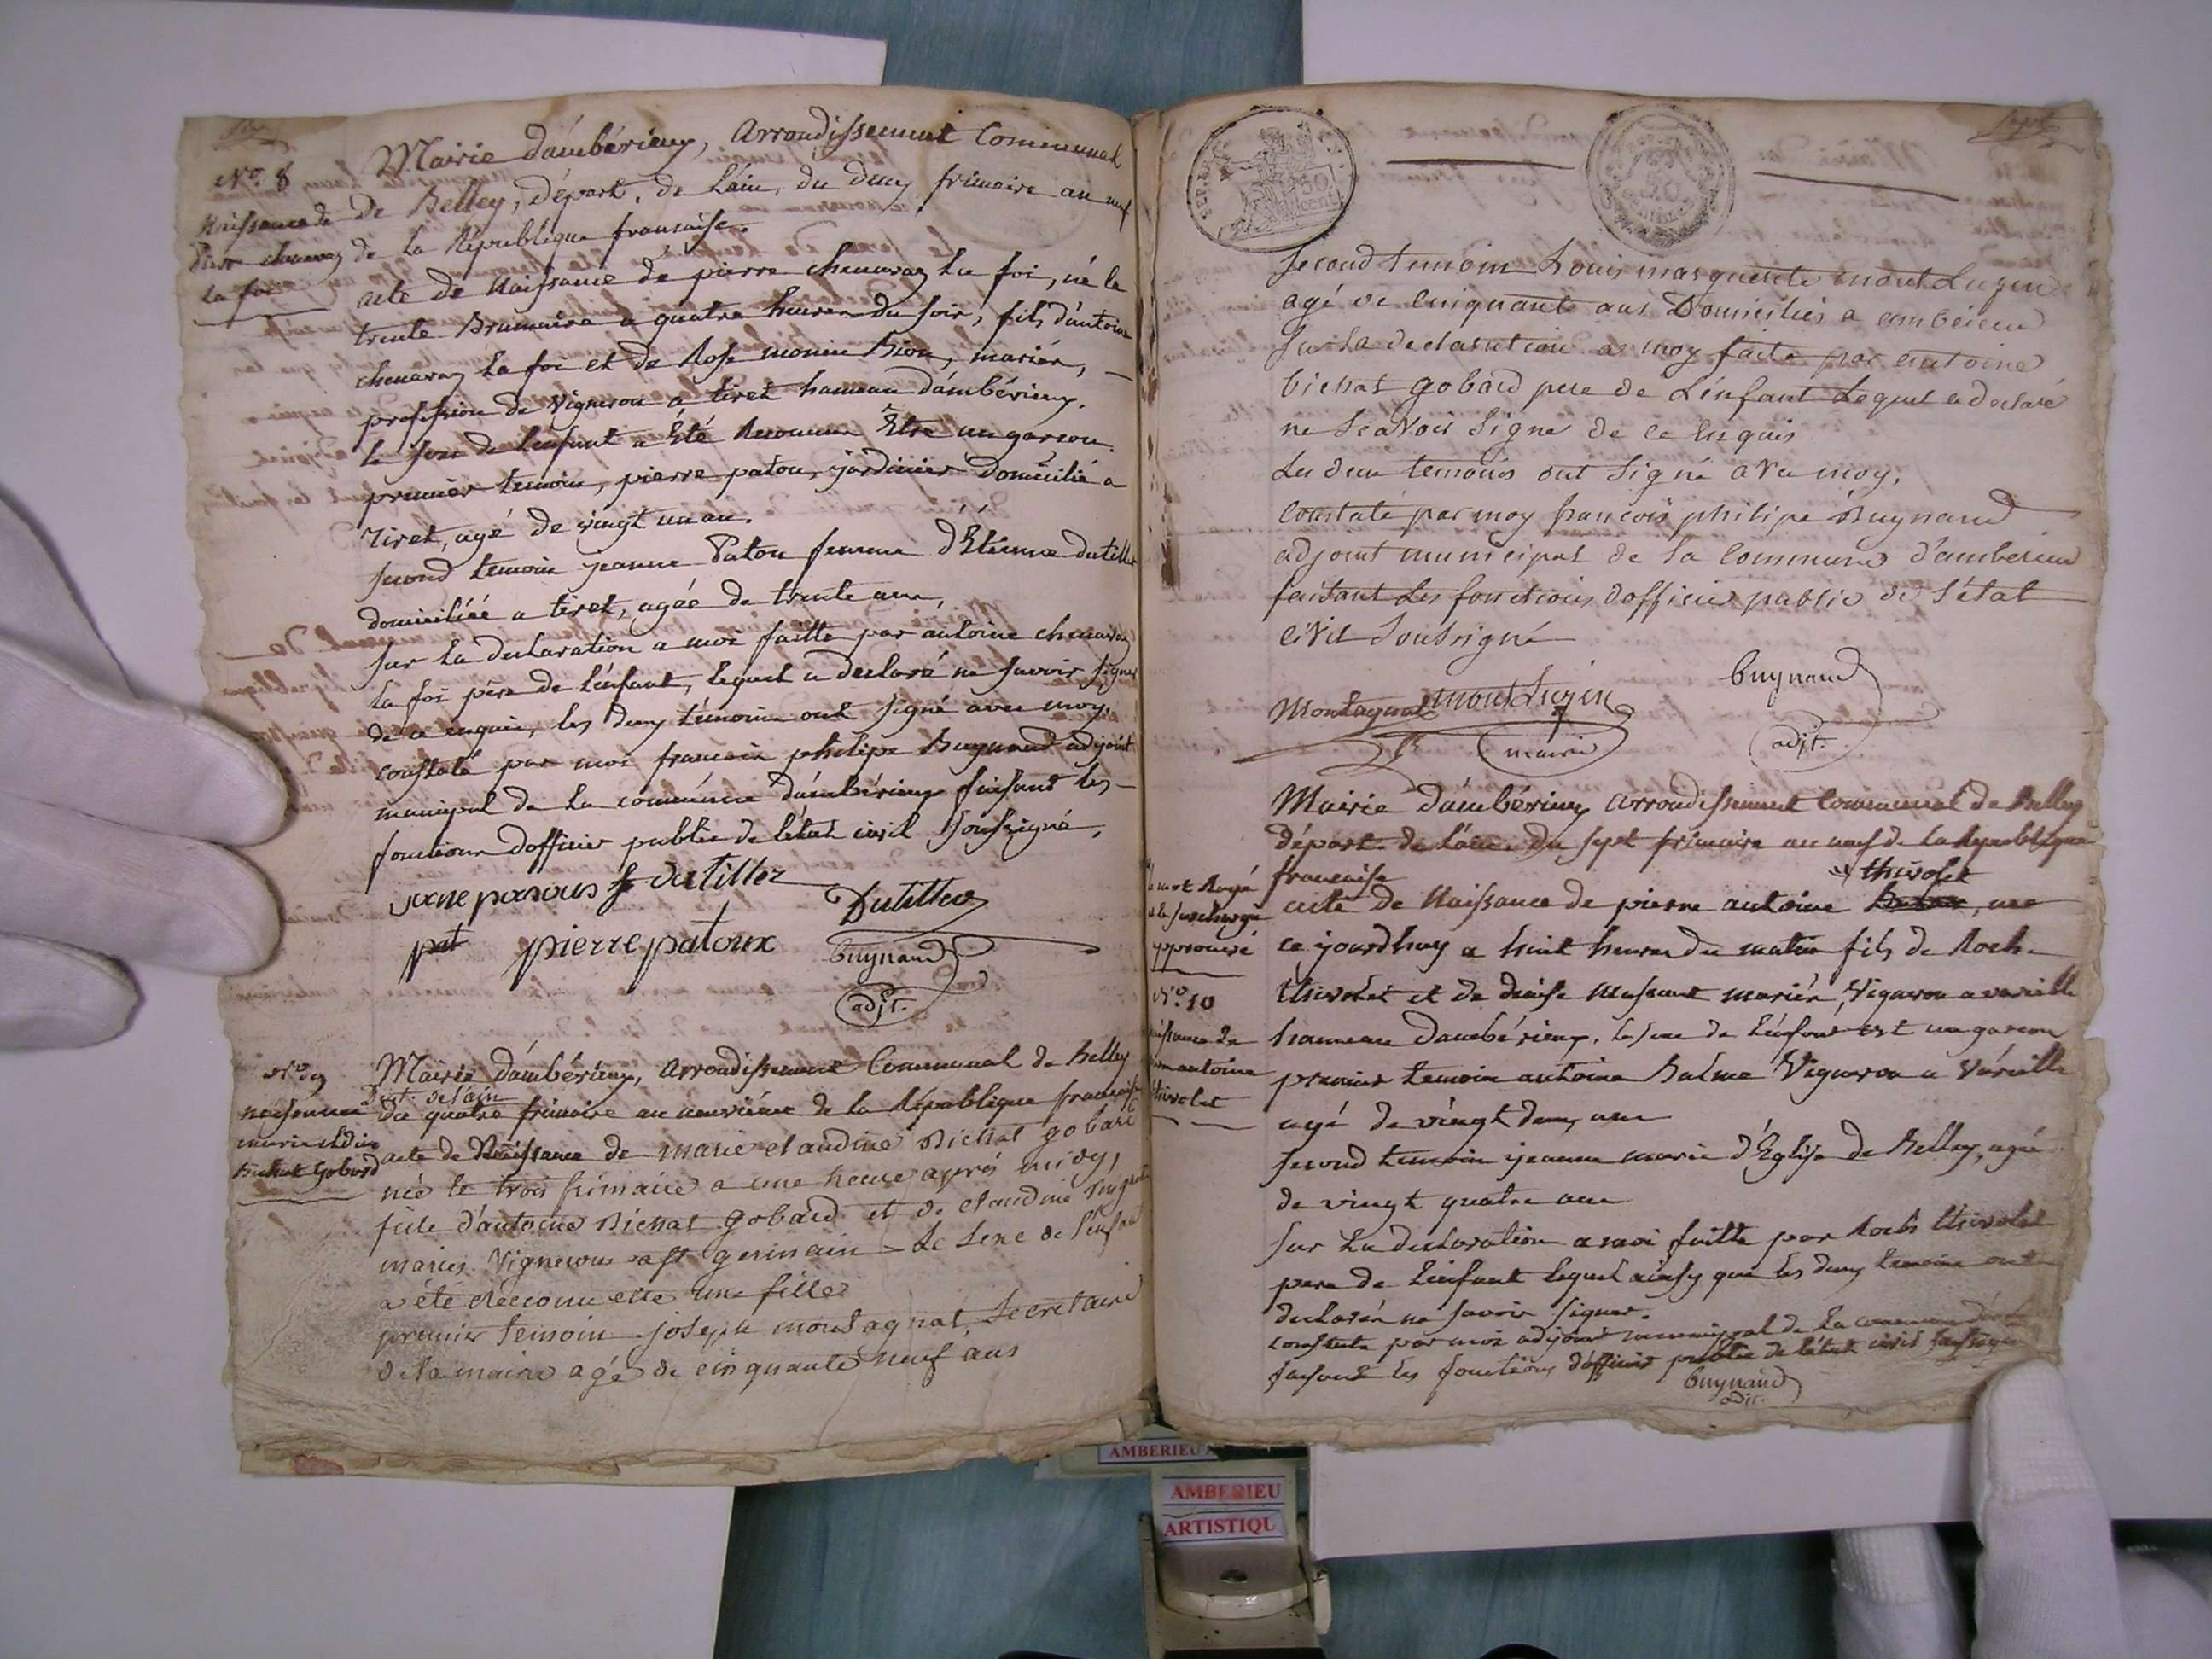 Six
N.º 8
Naissance de
Pierre chenavaz
La foi
Mairie d'ambérieux, Arrondissement Communal
de Belley, départ. de L'ain, du deux frimaire an neuf
de la République francaise.
acte de Naissance de pierre chenavaz La foi, né le
trente Brumaire a quatre heures du soir, fils d'antoine
chenavaz La foi et de Rose monin Bion, mariés, —
profession de Vigneron a tiret hameau d'ambérieux.
le sexe de l'enfant a Eté Reconnu Être un garson.
premier temoin, pierre patou, jardinier domicilié a
Tiret, agé de vingt un an.
second temoin jeanne Patou femme d'Etienne dutillet
domiciliée a tiret, agée de trente ans,
sur la declaration a moi faitte par antoine chenavaz
La foi père de l'enfant, lequel a declaré ne savoir signer
de ce enquis, les deux témoins ont signé avec moy.
Constaté par moi francois philipe Buynand adjoint
municipal de la commune d'ambérieux faisant les
fonctions d'officier public de l'état civil soussigné.
dutillez
Dutillez
pat pierre patoux
Buynand
adjt.
N.º 9
naissance
marie cldine
Bichat Gobard
Mairie d'ambérieux, arrondissement Communal de belley
Dept. de l'ain
du quatre frimaire an neuvième de la République francaise
acte de Naissance de marie claudine Bichat gobard
née le trois frimaire a une heure après midy,
fille d'antoine Bichat gobard et de claudine
mariés Vignerons a st germain Le Sexe de l'enfant
a été reconnu etre une fille
premier temoin joseph montagnat, Secretaire
de la mairie agé de cinquante neuf ans
sept
REP. FRA.
50
cent
50
second temoin Louis marguerite montluzin
agé de cinquante ans Domiciliés a amberieu
Sur la declaration a moy faite par antoine
bichat gobard pere de L'enfant Lequel a declaré
ne Scavoir Signé de ce Enquis
Les deux temoins ont Signé avec moy,
Constaté par moy francois philipe Buynand
adjoint municipal de la Commune d'amberieu
faisant les fonctions d'officier public de l'état
civil Soussigné
Buynand
Montagnat montluzin
maire
adjt.
Mairie d'ambérieux arrondissement Communal de Belley
départ. de l'ain. du sept frimaire an neuf de la République
francaise
thivolet
mot Rayé
et le surchargé
approuvé
acte de Naissance de pierre antoine , née
ce jourdhuy a huit heures du matin fils de Roch
thivolet et de
N.º 10
naissance de
pierre antoine
thivolet
mariés, Vigneron a vareille
hameau d'ambérieux. le sexe de l'enfant est un garson
premier temoin antoine Balme Vigneron a Vareille
agé de vingt deux ans
second temoin jeanne marie d'Eglise de Belley, agée
de vingt quatre ans
sur la declaration a moi faitte par Roch thivolet
pere de l'enfant lequel ainsy que les deux temoins ont
declarés ne savoir signer.
constaté par moi adjoint municipal de la commune
faisant les fonctions d'officier public de l'état civil soussigné
Buynand
adjt.
AMBERIEU
AMBERIEU
ARTISTIQU